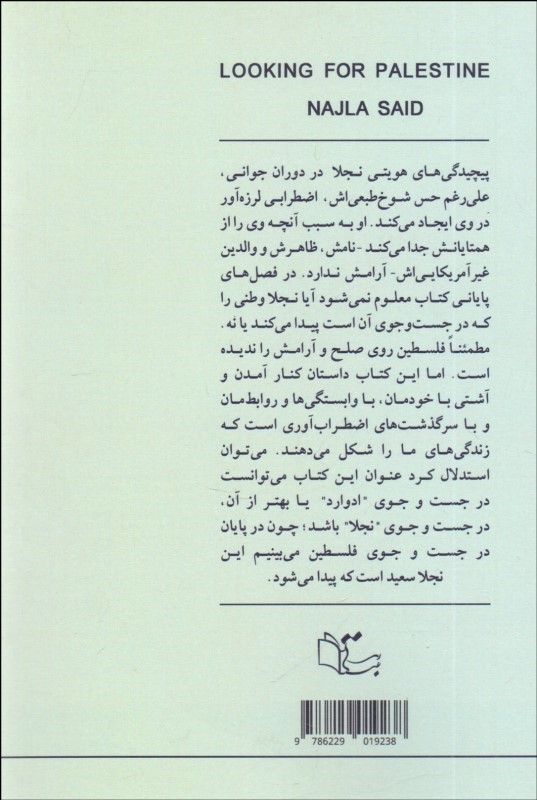 LOOKING FOR PALESTINE
NAJLA SAID
پیچیدگی‌های هویتی نجلا در دوران جوانی،
علی‌رغم حس شوخ‌طبعی‌اش، اضطرابی لرزه‌آور
در وی ایجاد می‌کند. او به سبب آنچه وی را از
همتایانش جدا می‌کند -نامش، ظاهرش و والدین
غیرآمریکایی‌اش- آرامش ندارد. در فصل‌های
پایانی کتاب معلوم نمی‌شود آیا نجلا وطنی را
که در جست‌وجوی آن است پیدا می‌کند یا نه.
مطمئناً فلسطین روی صلح و آرامش را ندیده
است. اما این کتاب داستان کنار آمدن و
آشتی با خودمان، با وابستگی‌ها و روابط‌مان
و با سرگذشت‌های اضطراب‌آوری است که
زندگی‌های ما را شکل می‌دهند. می‌توان
استدلال کرد عنوان این کتاب می‌توانست
در جست و جوی "ادوارد" یا بهتر از آن،
در جست و جوی "نجلا" باشد؛ چون در پایان
در جست و جوی فلسطین می‌بینیم این
نجلا سعید است که پیدا می‌شود.
9 786229 019238